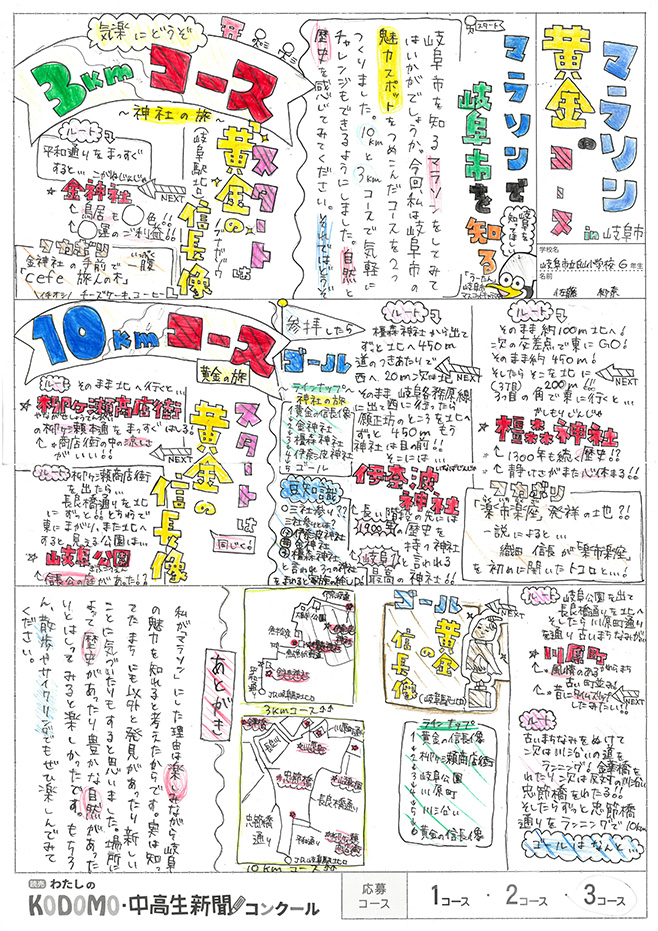 マラソン
黄金の
コース
in 岐阜市
学校名
岐阜市立
小学校
6年生
名前
佐藤
スタート
マラソンで
岐阜市を知る
岐阜を
知ってほしい
岐阜市を知るマラソンをしてみて
はいかがでしょうか。今回私は岐阜市の
魅力スポットをつめこんだコースを2つ
つくりました。10kmと3kmコースで気軽に
チャレンジもできるようにしました。自然と
歴史を感じてみてください。それではどうぞ
気楽にどうぞ
3kmコース
〜神社の旅〜
スタートは
黄金の
信長像
(岐阜駅北口)
ルート
平和通りをまっすぐ
すると…
こがねじんじゃ
金神社
NEXT
↳鳥居も◯色!!
↳◯運のご利益!!
金神社の手前で一腹
「cefe 旅人の木」
イチオシ チーズケーキ、コーヒー
参拝したら
ゴール
ラインナップ
神社の旅
1 黄金の信長像
2 金神社
3 橿森神社
4 伊奈波神社
5 ゴール
豆知識
◎三社参り??
三社参りとは?
①伊奈波神社
②金神社
③橿森神社
と言われる3つの神社
ルート
そのまま約100m北へ!
次の交差点で東にGO!
そのまま約450m!
そしたらそこを北に
200m!!!
3つ目の角で東に行くと…
NEXT
かしもりじんじゃ
橿森神社
↳1300年も続く歴史!?
↳静けさがまた心休まる!!
ルート
橿森神社から出て
ずっと北へ450m
道のつきあたりで
西へ20m次は北
NEXT
そのまま岐阜各務原線
に出て西に行ったら
願正坊のところを北へ
ずっと450mもう
神社は目の前!!
そこには…
伊奈波
神社
↳長い階段の先には
1900年の歴史を
持つ神社
↳岐阜で
最高の神社!!
「楽市楽座」発祥の地?!
説によると…
織田信長が「楽市楽座」
を初めに開いたトコロと…!
10kmコース
黄金の旅
スタートは
黄金の
信長像
同じく!
ルート
そのまま北へ行くと…
柳ヶ瀬商店街
の柳ヶ瀬本通をまっすぐはしる!
↳商店街の中の
がいい!!
NEXT
ルート
柳ヶ瀬商店街
を出たら…
長良橋通りを北へ
にずっと!!とちゅうで
東にまがり、また北へ
すると見える公園は…
岐阜公園
↳信長公の庭があった!?
ルート
岐阜公園を出て
長良橋通りを北へ
そしたら川原町通り
を通り古いまちなみが!!
川原町
↳風情のあるまち
古い町並み!
↳昔にタイムスリップ
したみたい!!
NEXT
ルート
古いまちなみをぬけて
次は川沿いの道を
ランニング!金華橋を
わたり次は反対の川沿い
忠節橋をわたる!!
そしたらずっと忠節橋
通りをランニングで10km
ゴールはなんと…
NEXT
ゴール
黄金の
信長像
(岐阜駅北口)
ラインナップ
1 黄金の信長像
2 柳ヶ瀬商店街
3 岐阜公園
4 川原町
5 川沿い
6 黄金の信長像
3kmコース
忠節橋
通り
長良橋通り
10kmコース
あとがき
私が「マラソン」にした理由は楽しみながら岐阜
の魅力を知れると考えたからです。実は知っ
てたまちにも以外と発見があったり新しい
ことに気づいたりもすると思いました。場所に
よって歴史があったり豊かな自然があった
りとはしってみると楽しかったです。もちろ
ん、散歩やサイクリングでもぜひ楽しんでみて
ください。
読売 わたしの
KODOMO・中高生新聞コンクール
応募
コース
1コース・2コース・3コース